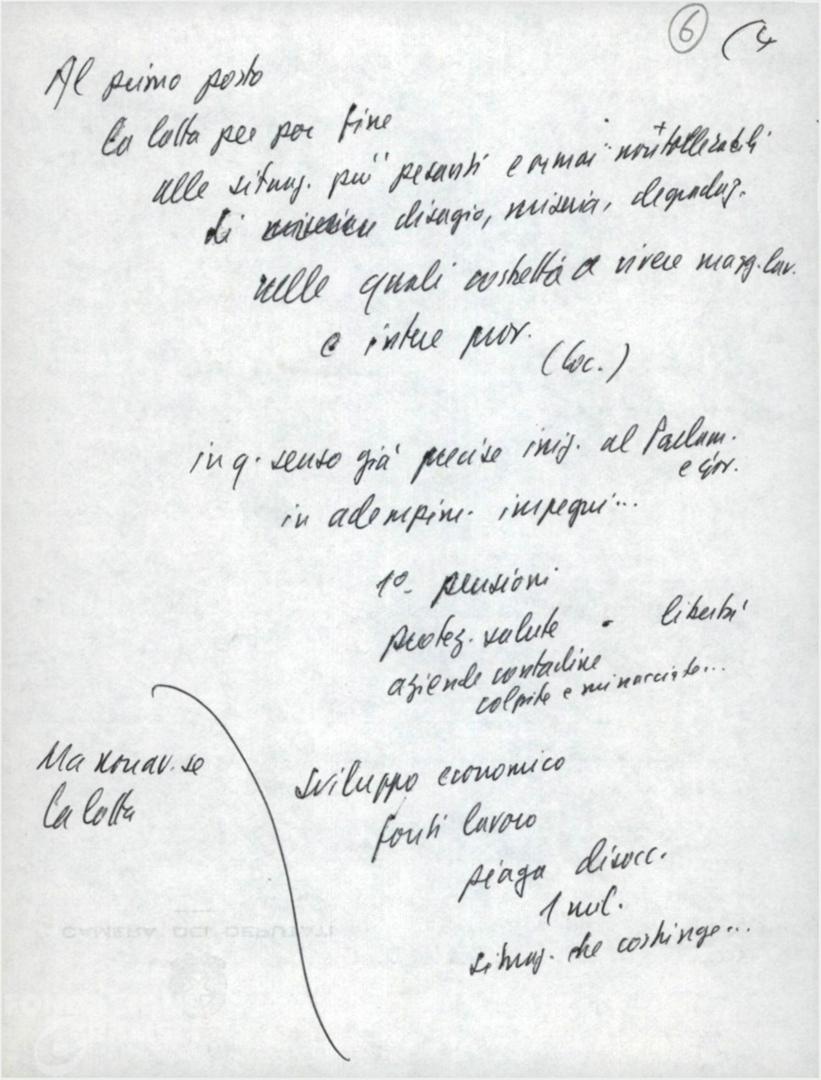 6 (4
Al primo posto
la lotta per por fine
alle situaz. più pesanti e ormai non + tollerabili
di disagio, miseria, degradaz.
nelle quali costretta a vivere magg. lav.
e intere prov.
(loc.)
in q. senso già precise iniz. al Parlam.
e gov.
in adempim. impegni...
1º - pensioni
protez. salute - libertà
aziende contadine
colpite e minacciate...
Ma non av. se
la lotta
Sviluppo economico
fonti lavoro
piaga disocc.
1 mil.
situaz. che costringe...
CAMERA DEI DEPUTATI